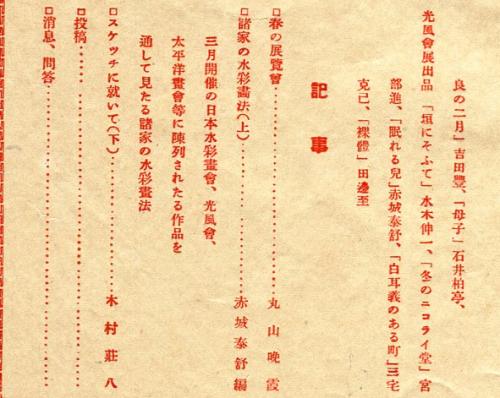 良の二月」吉田豐、「母子」石井柏亭、
光風會展出品　「垣にそふて」水木伸一、「冬のニコライ堂」宮
部進、「眠れる兒」赤城泰舒、「白耳義のある町」三宅
克己、「裸體」田邊至
記事
□春の展覽會……………………丸山晩霞
□諸家の水彩畫法(上)……………………赤城泰舒編
三月開催の日本水彩畫會、光風會、
太平洋畫會等に陳列されたる作品を
通して見たる諸家の水彩畫法
□スケッチに就いて(下)……………………木村莊八
□投稿……………………
□消息、問答……………………